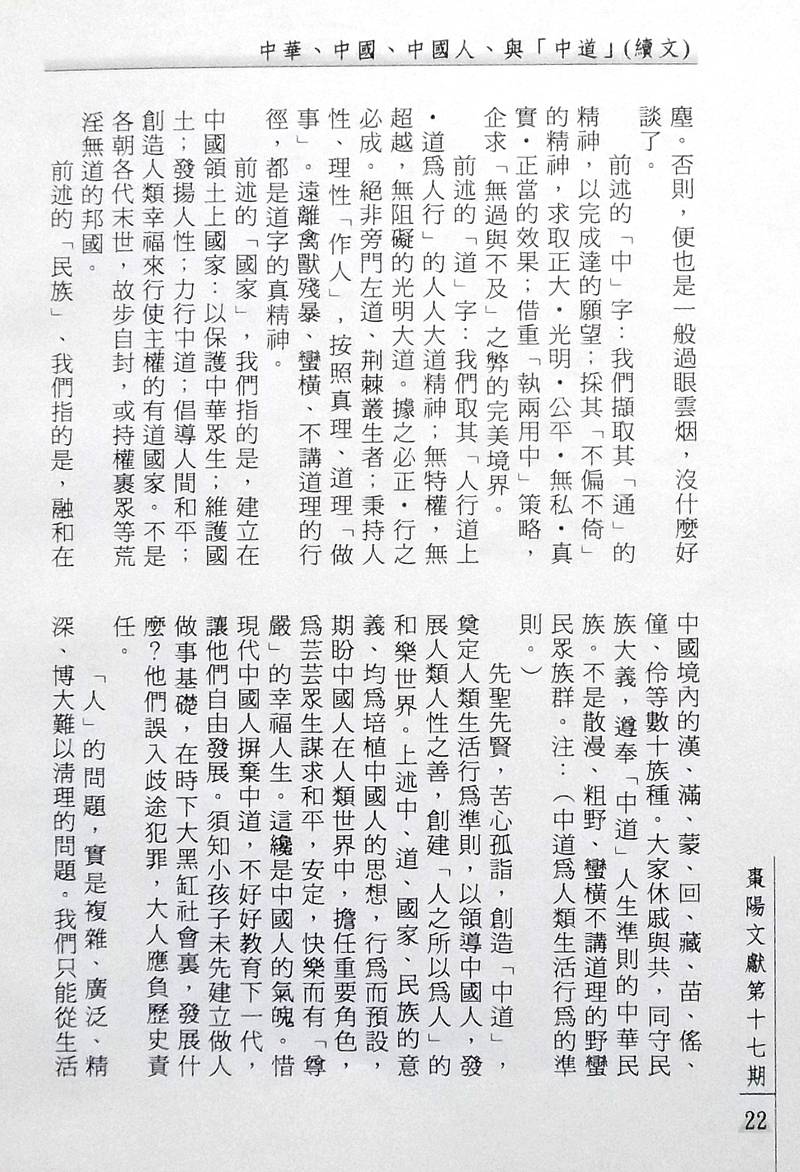 中華、中國、中國人、與「中道」(續文)
塵。否則，便也是一般過眼雲烟，沒什麼好
談了。
前述的「中」字：我們擷取其「通」的
精神，以完成達的願望；採其「不偏不倚」
的精神，求取正大·光明·公平·無私·真
實·正當的效果；借重「執兩用中」策略，
企求「無過與不及」之弊的完美境界。
前述的「道」字：我們取其「人行道上
·道爲人行」的人人大道精神；無特權，無
超越，無阻礙的光明大道。據之必正·行之
必成。絕非旁門左道、荆棘叢生者；秉持人
性、理性「作人」，按照真理、道理「做
事」。遠離禽獸殘暴、蠻橫、不講道理的行
徑，都是道字的真精神。
前述的「國家」，我們指的是，建立在
中國領土上國家：以保護中華眾生；維護國
土；發揚人性；力行中道；倡導人間和平；
創造人類幸福來行使主權的有道國家。不是
各朝各代末世，故步自封，或持權裹眾等荒
淫無道的邦國。
前述的「民族」、我們指的是，融和在
中國境內的漢、滿、蒙、回、藏、苗、傜、
僮、伶等數十族種。大家休戚與共，同守民
族大義，遵奉「中道」人生準則的中華民
族。不是散漫、粗野、蠻橫不講道理的野蠻
民眾族群。注：（中道爲人類生活行爲的準
則。）
先聖先賢，苦心孤詣，創造「中道」，
奠定人類生活行爲準則，以領導中國人，發
展人類人性之善，創建「人之所以爲人」的
和樂世界。上述中、道、國家、民族的意
義、均爲培植中國人的思想，行爲而預設，
期盼中國人在人類世界中，擔任重要角色，
爲芸芸眾生謀求和平，安定，快樂而有「尊
嚴」的幸福人生。這纔是中國人的氣魄。惜
現代中國人摒棄中道，不好好教育下一代，
讓他們自由發展。須知小孩子未先建立做人
做事基礎，在時下大黑缸社會裏，發展什
麼？他們誤入歧途犯罪，大人應負歷史責
任。
「人」的問題，實是複雜、廣泛、精
深、博大難以清理的問題。我們只能從生活
棗陽文獻第十七期
22